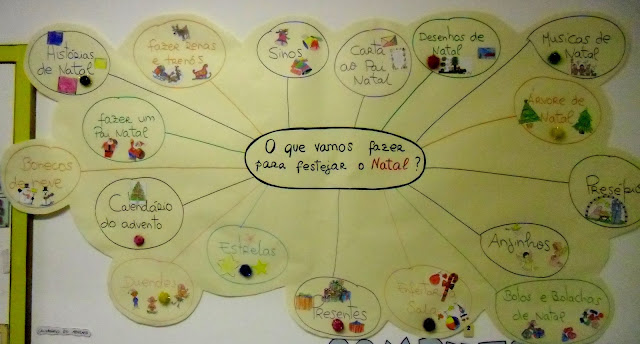 Histórias
de Natal
fazer renas
e trenós
Sinos
Carta
ao Pai
Natal
Desenhos de
Natal
Musicas de
Natal
fazer um
Pai Natal
Árvore de
Natal
O que vamos fazer
para festejar o Natal?
Bonecos
de neve
Presépio
Calendário
do advento
Estrelas
Anjinhos
Duendes
Presentes
Sala
Bolos e Bolachas
de Natal